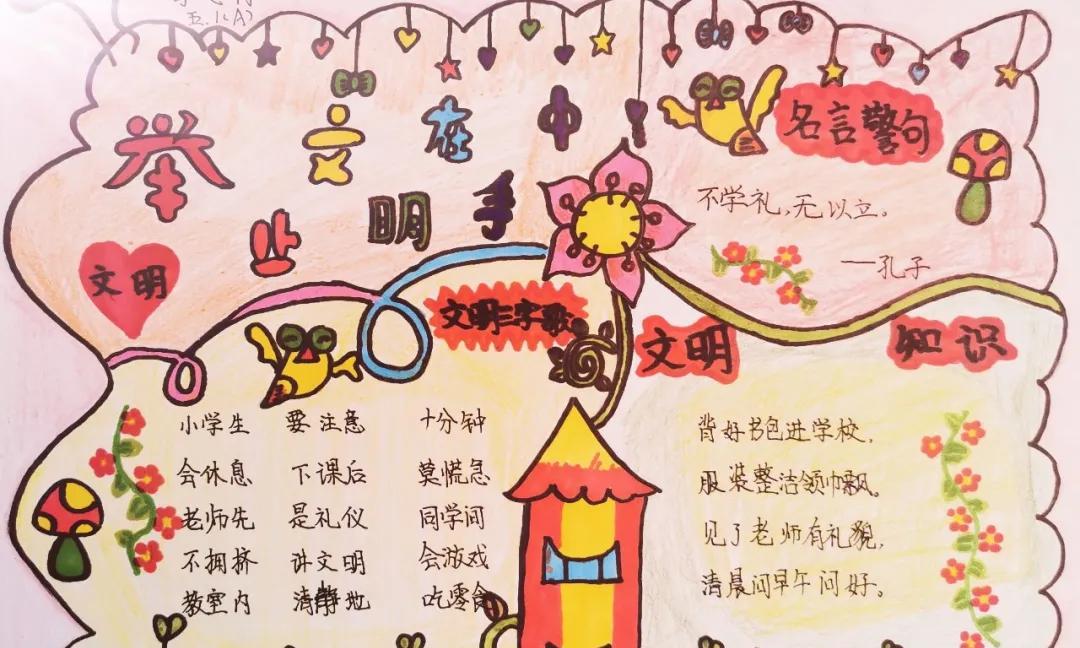 五.1(A)
举止文明在手中!
名言警句
不学礼,无以立。
—孔子
文明
文明三字歌
小学生 要注意 十分钟
会休息 下课后 莫慌急
老师先 是礼仪 同学间
不拥挤 讲文明 会游戏
教室内 清静地 吃零食
文明知识
背好书包进学校,
服装整洁领巾飘。
见了老师有礼貌,
清晨问早午问好。